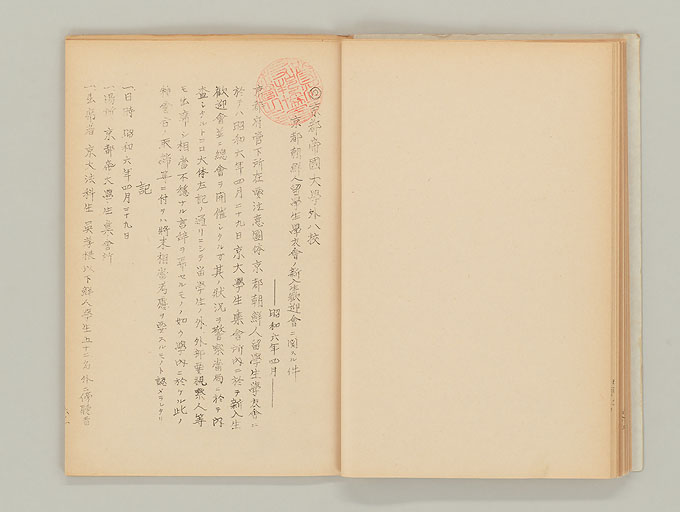 ◎京都帝國大學外八校
京都朝鮮人留學生學友會ノ新入生歡迎會ニ関スル件
―昭和六年四月―
京都府管下所在要注意團体京都朝鮮人留學生學友會ニ
於テハ昭和六年四月二十九日京大學生集會所内ニ於テ新入生
歡迎會並ニ總會ヲ開催シタルガ其ノ狀況ヲ警察當局ニ於テ内
査シタルトコロ大体左記ノ通リニシテ留學生ノ外外部要視察人等
モ出席シ相當不穩ナル言辞ヲ弄セルモノノ如ク學内ニ於ケル此ノ
種會合ノ取締等ニ付テハ將來相當考慮ヲ要スルモノト認メラレタリ
記
一、日時 昭和六年四月二十九日
一、場所 京都帝大學生集會所
一、出席者 京大法科生 以下鮮人學生五十二名外ニ傍聽者